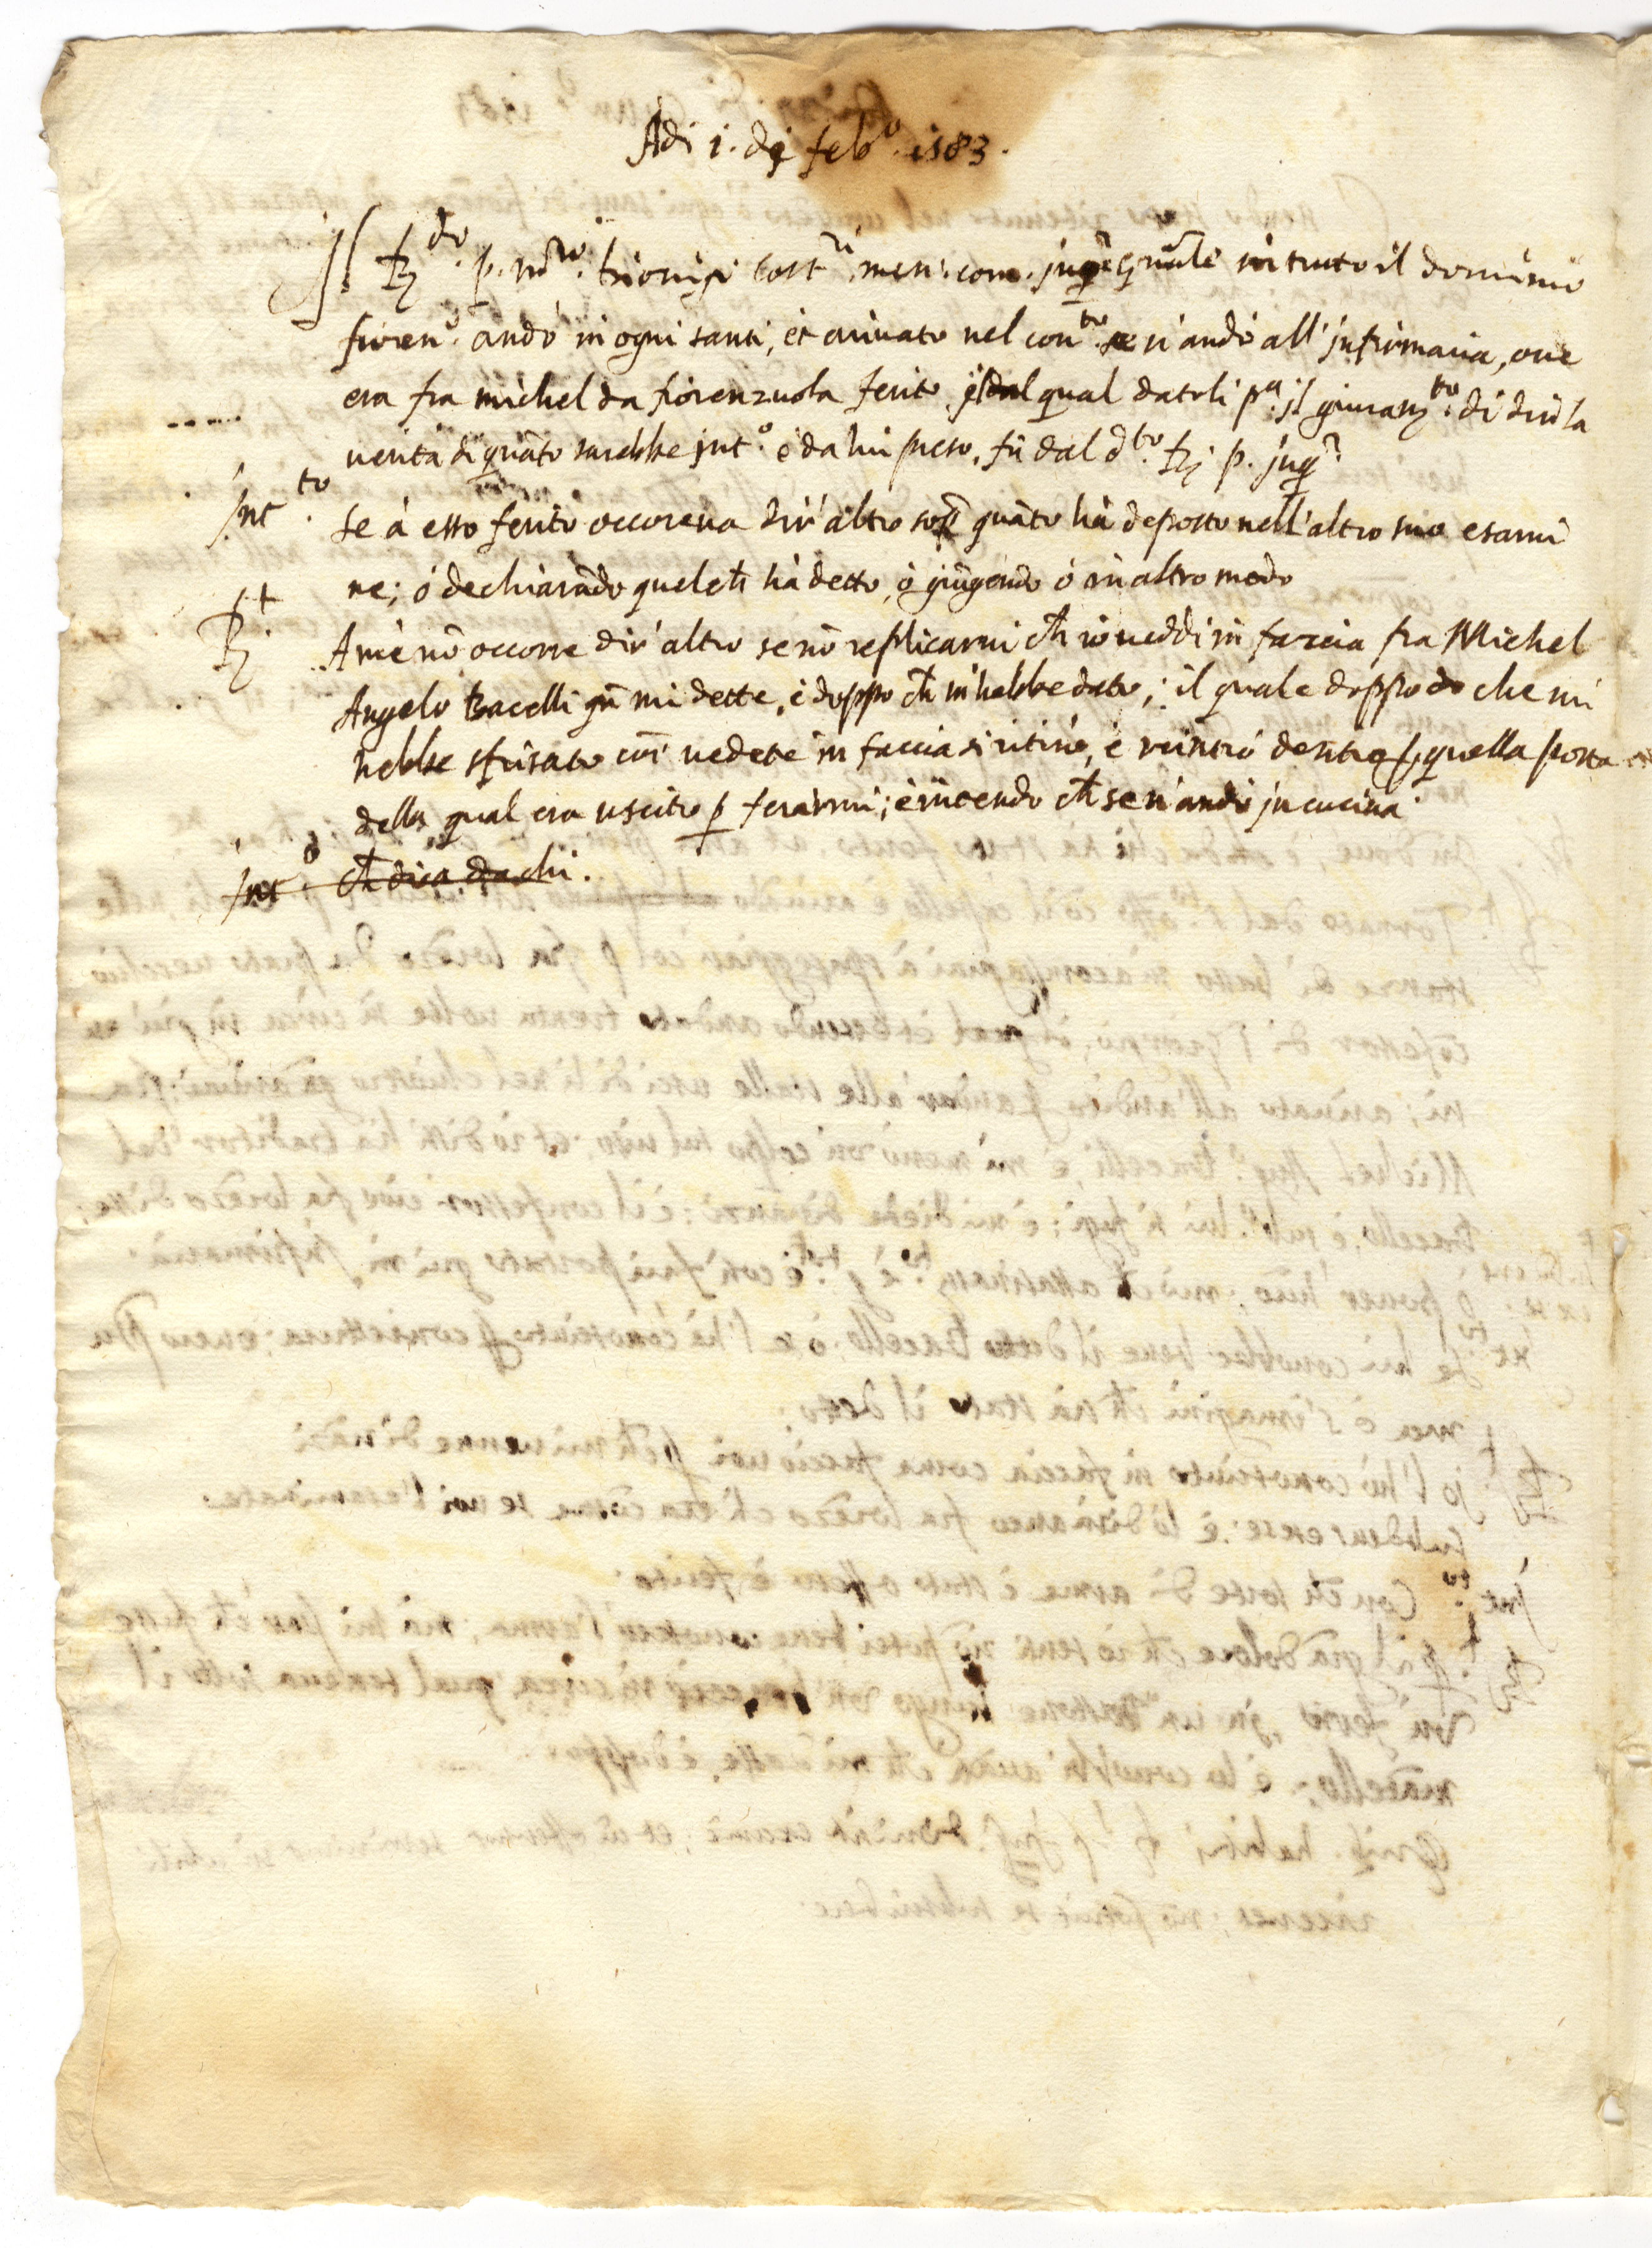 Adi 1. di feb.º 1583.
Il R.do p. m.ro Dionigi Cost.ri min: con. inq.r g͠nale in tutto il dominio
fioren.º andò in ogni santi, et arivato nel con.to se n'andò all'infirmaria, ove
era fra michel da fiorenzuola ferito, dal qual datoli p.a il giuram.to di dir la
verità di quãto sarebbe int.º e da lui preso, fù dal d.to R. p. inq.r
Int.to se à esso ferito occoreva dir' altro sop͠ quãto hà deposto nell'altro suo esami
ne; ó dechiarãdo quel ch͠ hà detto, ò giũgendo ó in altro modo
R.t A me nõ occorre dir' altro se nõ replicarvi ch͠ io veddi in faccia fra Michel
Angelo Bacelli qñ mi dette, e doppo ch͠ m'hebbe dato; il quale doppo che mi
hebbe sfrisato coſi vedete in faccia si ritirò, e reintrò dentro p quella porta
della qual era uscito p ferirmi; e intendo ch͠ se n'andò in cucina.
Int.º ch͠ dica da chi.